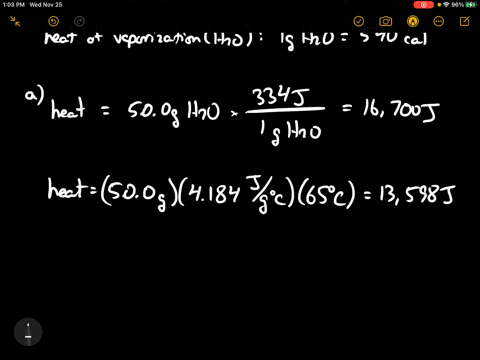 1:03 PM Wed Nov 25
96%
heat of vaporization (H2O): 1g H2O = 540 cal
a) heat = 50.0g H2O × 334J / 1g H2O = 16,700J
heat = (50.0g)(4.184 J/g°C)(65°C) = 13,598J